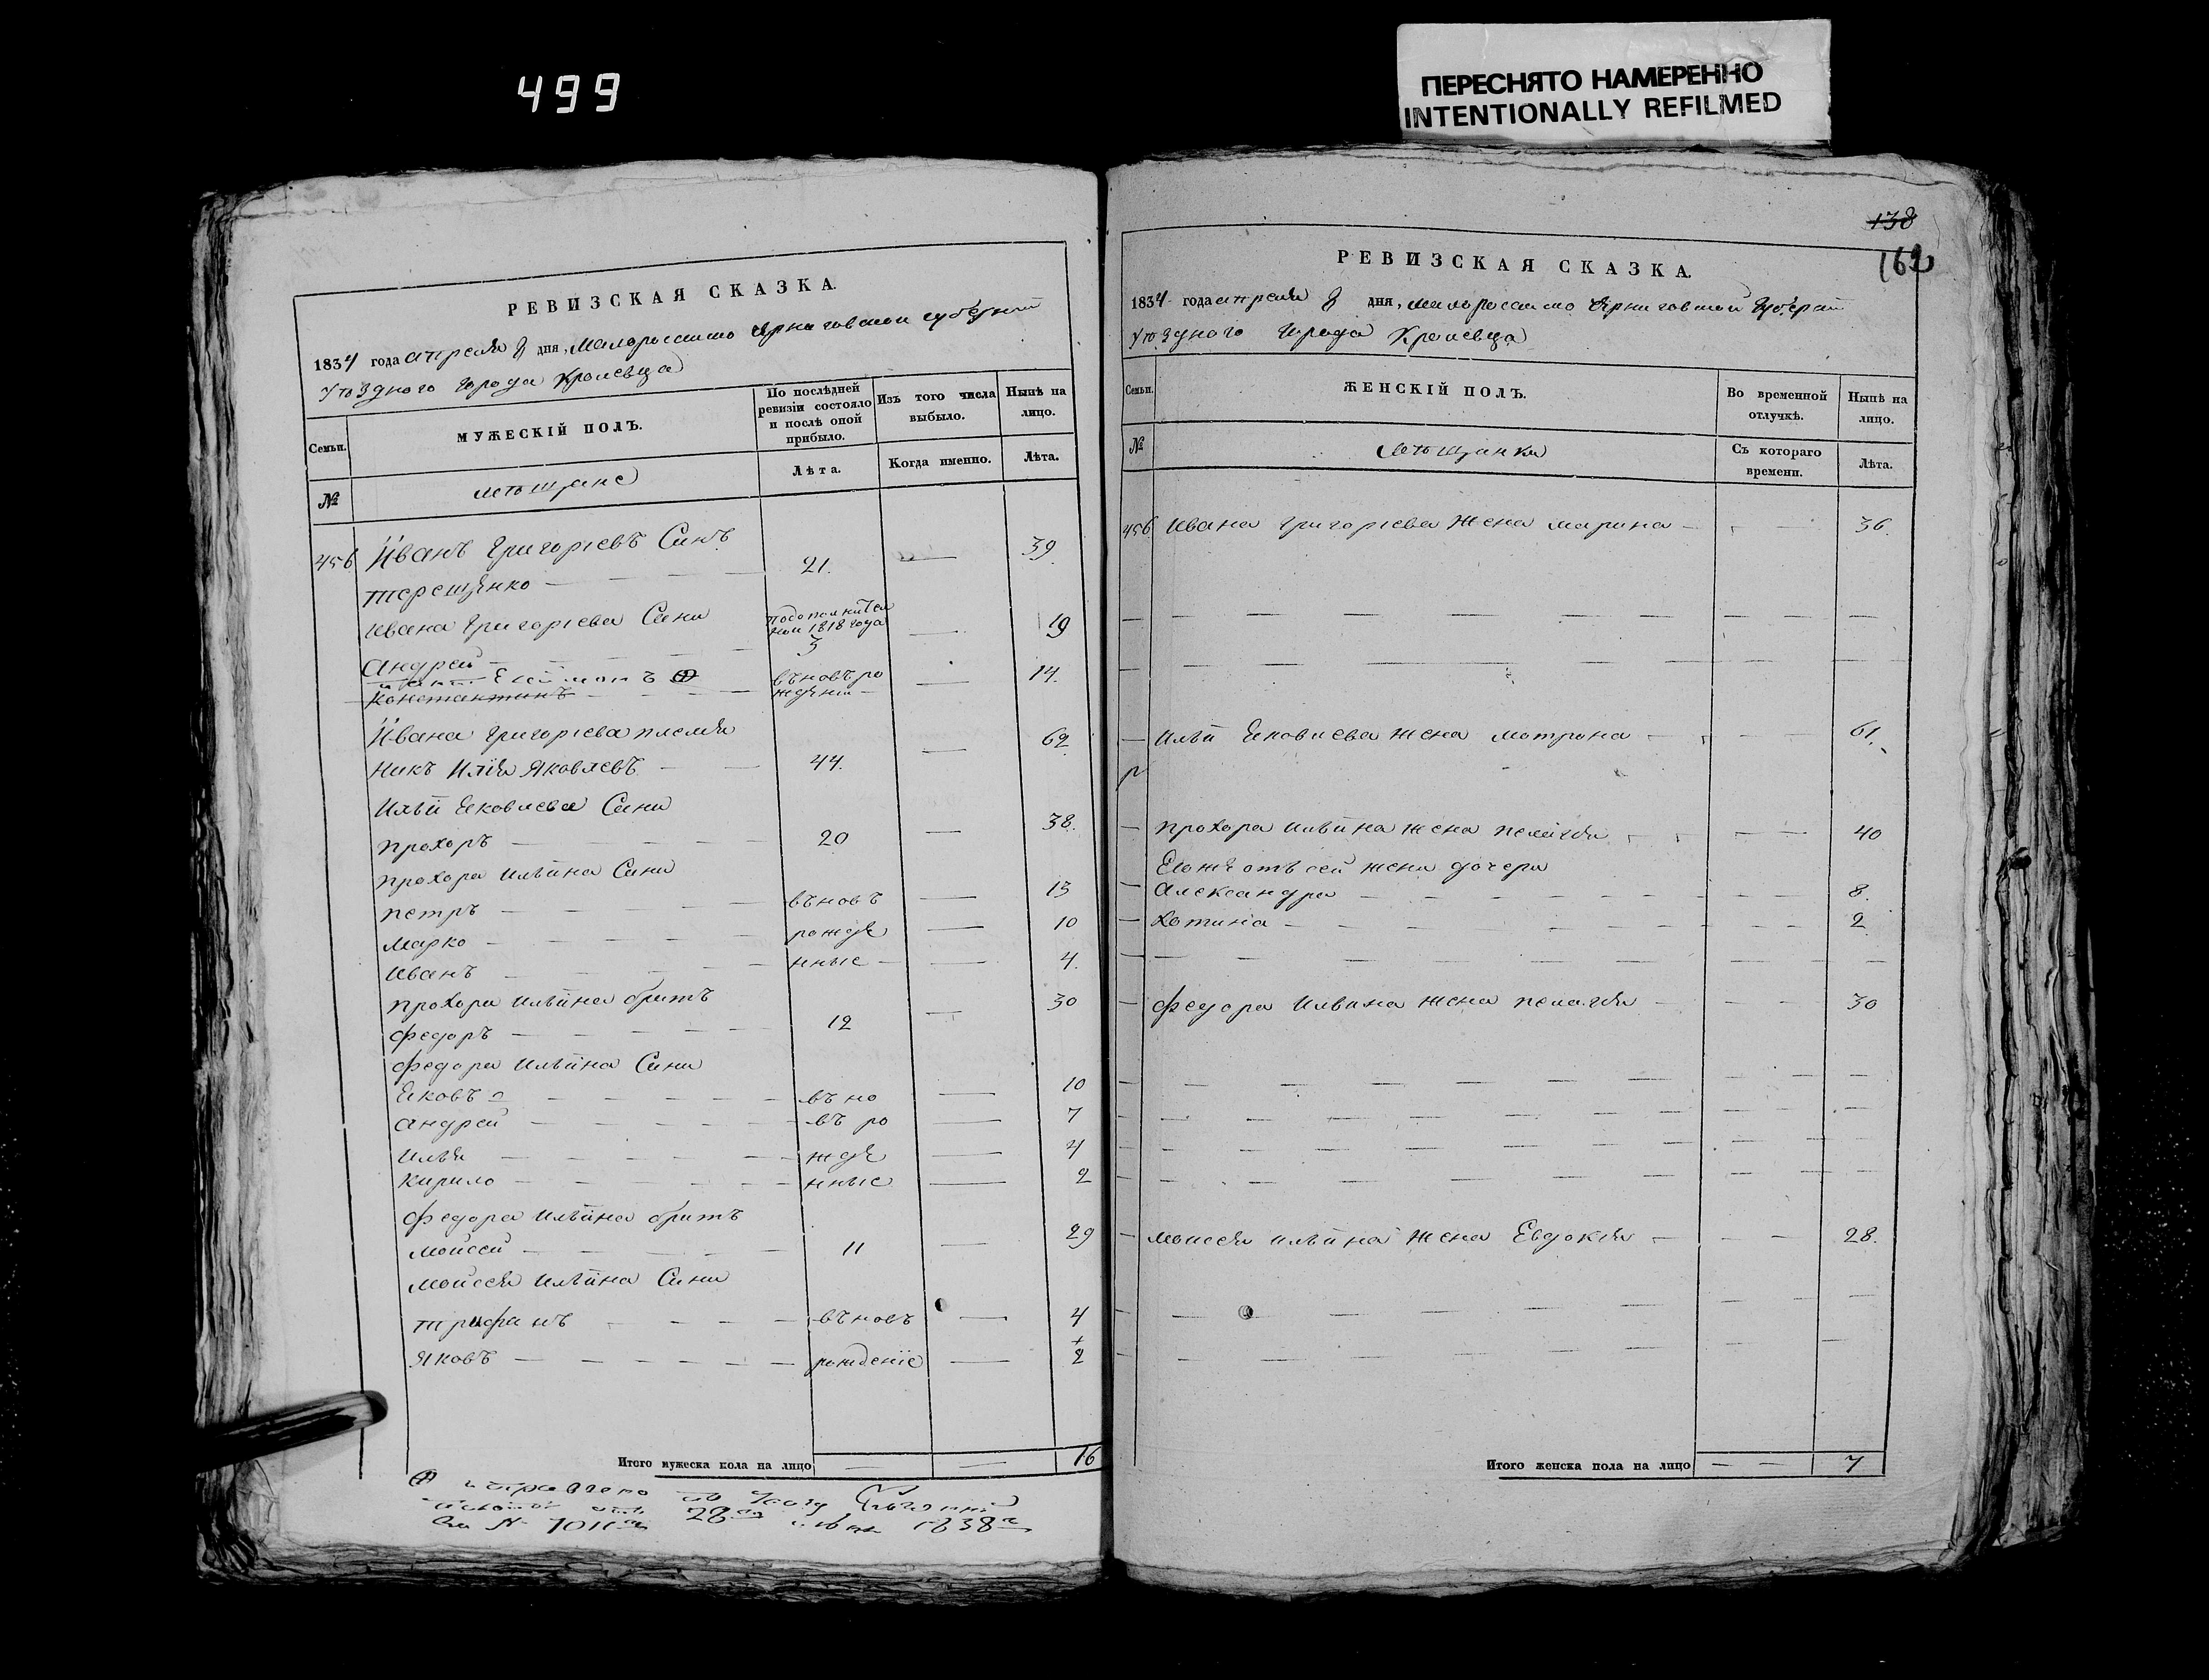 499
ПЕРЕСНЯТО НАМЕРЕННО
INTENTIONALLY REFILMED
РЕВИЗСКАЯ СКАЗКА.
1834 года апреля дня, Малороссийско Черниговской губерний
Уѣздного города Кролевца
Семьи.
МУЖЕСКІЙ ПОЛЪ.
По послѣдней ревизіи состояло и послѣ оной прибыло.
Изъ того числа выбыло.
Нынѣ на лицо.
№
мѣщане
Лѣта.
Когда именно.
Лѣта.
456 Иванъ Григоріевъ Синъ
терещенко — 21. — 39.
Ивана Григоріева Сини
андрей — подополнител ной 1818 года 3 — 19
Константинъ — въновъ ро ждении — 14.
Ивана Григоріева племя
никъ Илія Яковлевъ — 44. — 62
Ильи Яковлева Сини
прохоръ — 20 — 38.
прохора Ильина Сини
петръ — въновъ — 13
Марко — рожде — 10
Иванъ — нные — 4.
прохора Ильина братъ
федоръ — 12 — 30
федора Ильина Сини
Яковъ — въ но — 10
андрей — въ ро — 7
Илья — жде — 4
Кирило — нные — 2
федора Ильина братъ
мойсей — 11 — 29
мойсея Ильина Сини
трифанъ — въновъ — 4
Яковъ — рожденіе — 2
Итого мужеска пола на лицо — — 16
№ 7011 28 1838
138
162
РЕВИЗСКАЯ СКАЗКА.
1834 года апреля дня, Малороссийско Черниговской Губерний
Уѣздного города Кролевца
Семьи.
ЖЕНСКІЙ ПОЛЪ.
Во временной отлучкѣ.
Нынѣ на лицо.
№
мѣщанки
Съ котораго времени.
Лѣта.
456 Ивана Григоріева жена марина — 36.
— Ильи Яковлева жена мотрона — 61.
— прохора Ильина жена пелагея — 40
Егоже отъ сей жены дочери
— александра — 8.
— Хотинія — 2
— федора Ильина жена пелагея — 30
— мойсея Ильина жена Евдокія — 28.
Итого женска пола на лицо — — 7